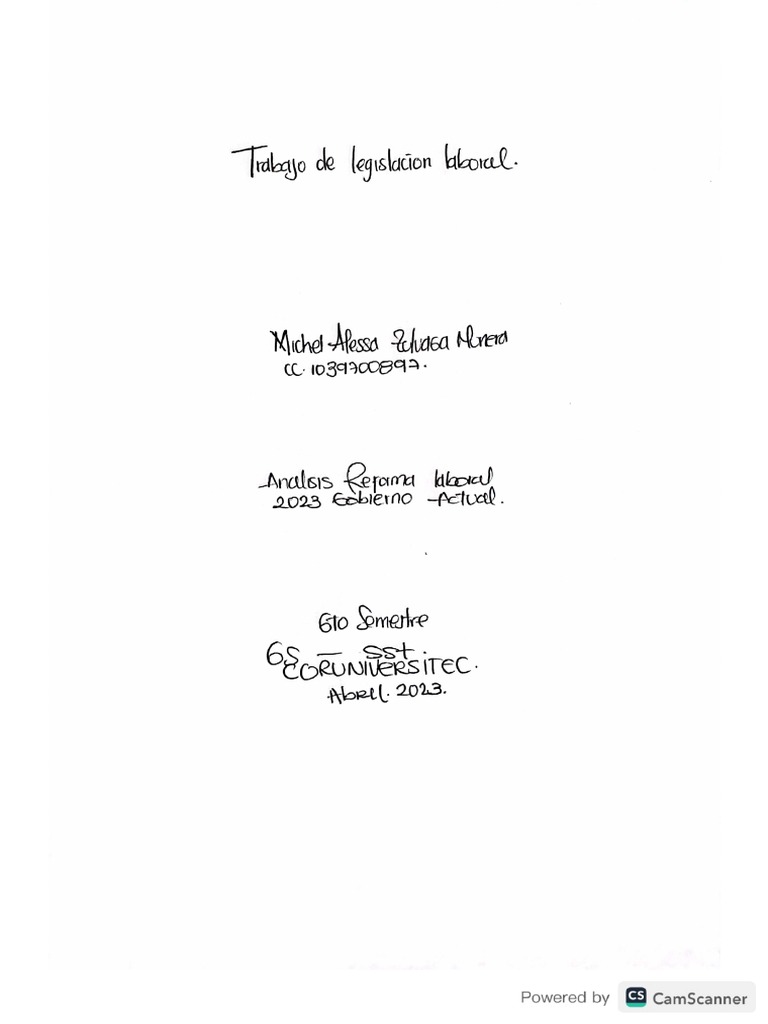 Trabajo de legislacion laboral.
Michel Alessa Munera
CC. 1039700897.
Analisis Reforma laboral
2023 Gobierno Actual.
6to Semestre
GS — SST.
CORUNIVERSITEC.
Abril. 2023.
Powered by CS CamScanner